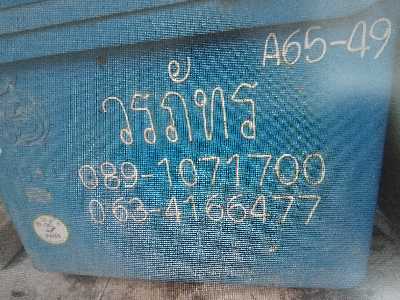 A65-49
วรภัทร
089-1071700
063-4166477